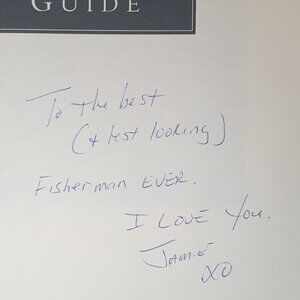 GUIDE
To the best
(& best looking)
Fisherman EVER.
I LOVE You.
JAMIE
XO